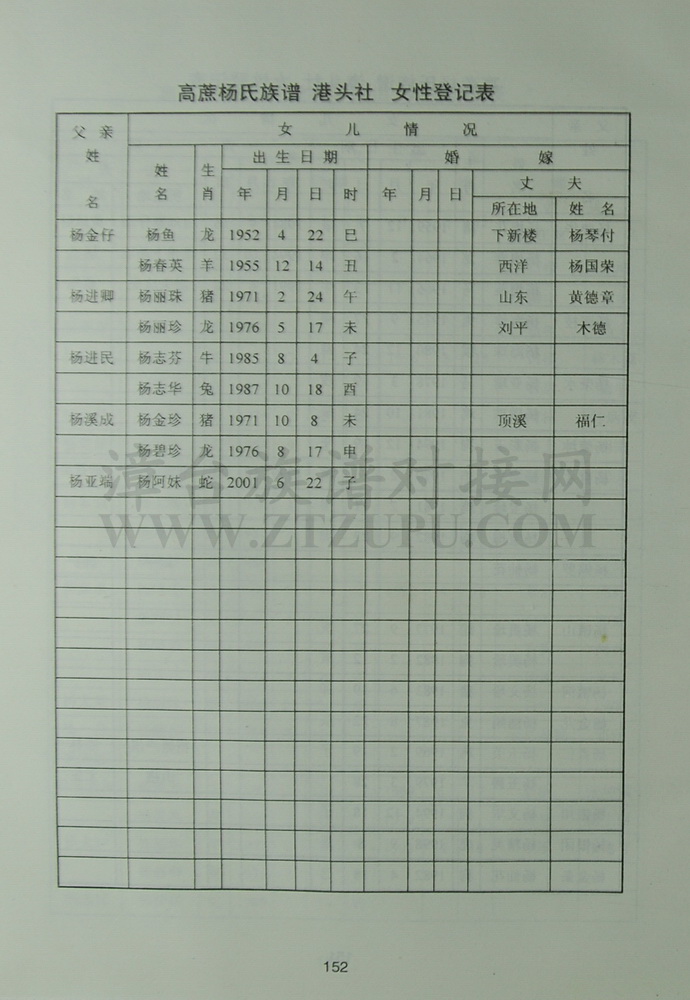 高蔗杨氏族谱 港头社 女性登记表
父亲姓名 女儿情况
姓名 生肖 出生日期 婚嫁
年 月 日 时 年 月 日 丈夫
所在地 姓名
杨金仔 杨鱼 龙 1952 4 22 巳 下新楼 杨琴付
杨春英 羊 1955 12 14 丑 西洋 杨国荣
杨进卿 杨丽珠 猪 1971 2 24 午 山东 黄德章
杨丽珍 龙 1976 5 17 未 刘平 木德
杨进民 杨志芬 牛 1985 8 4 子
杨志华 兔 1987 10 18 酉
杨溪成 杨金珍 猪 1971 10 8 未 顶溪 福仁
杨碧珍 龙 1976 8 17 申
杨亚端 杨阿妹 蛇 2001 6 22 子
漳台族谱对接网
WWW.ZTZUPU.COM
152